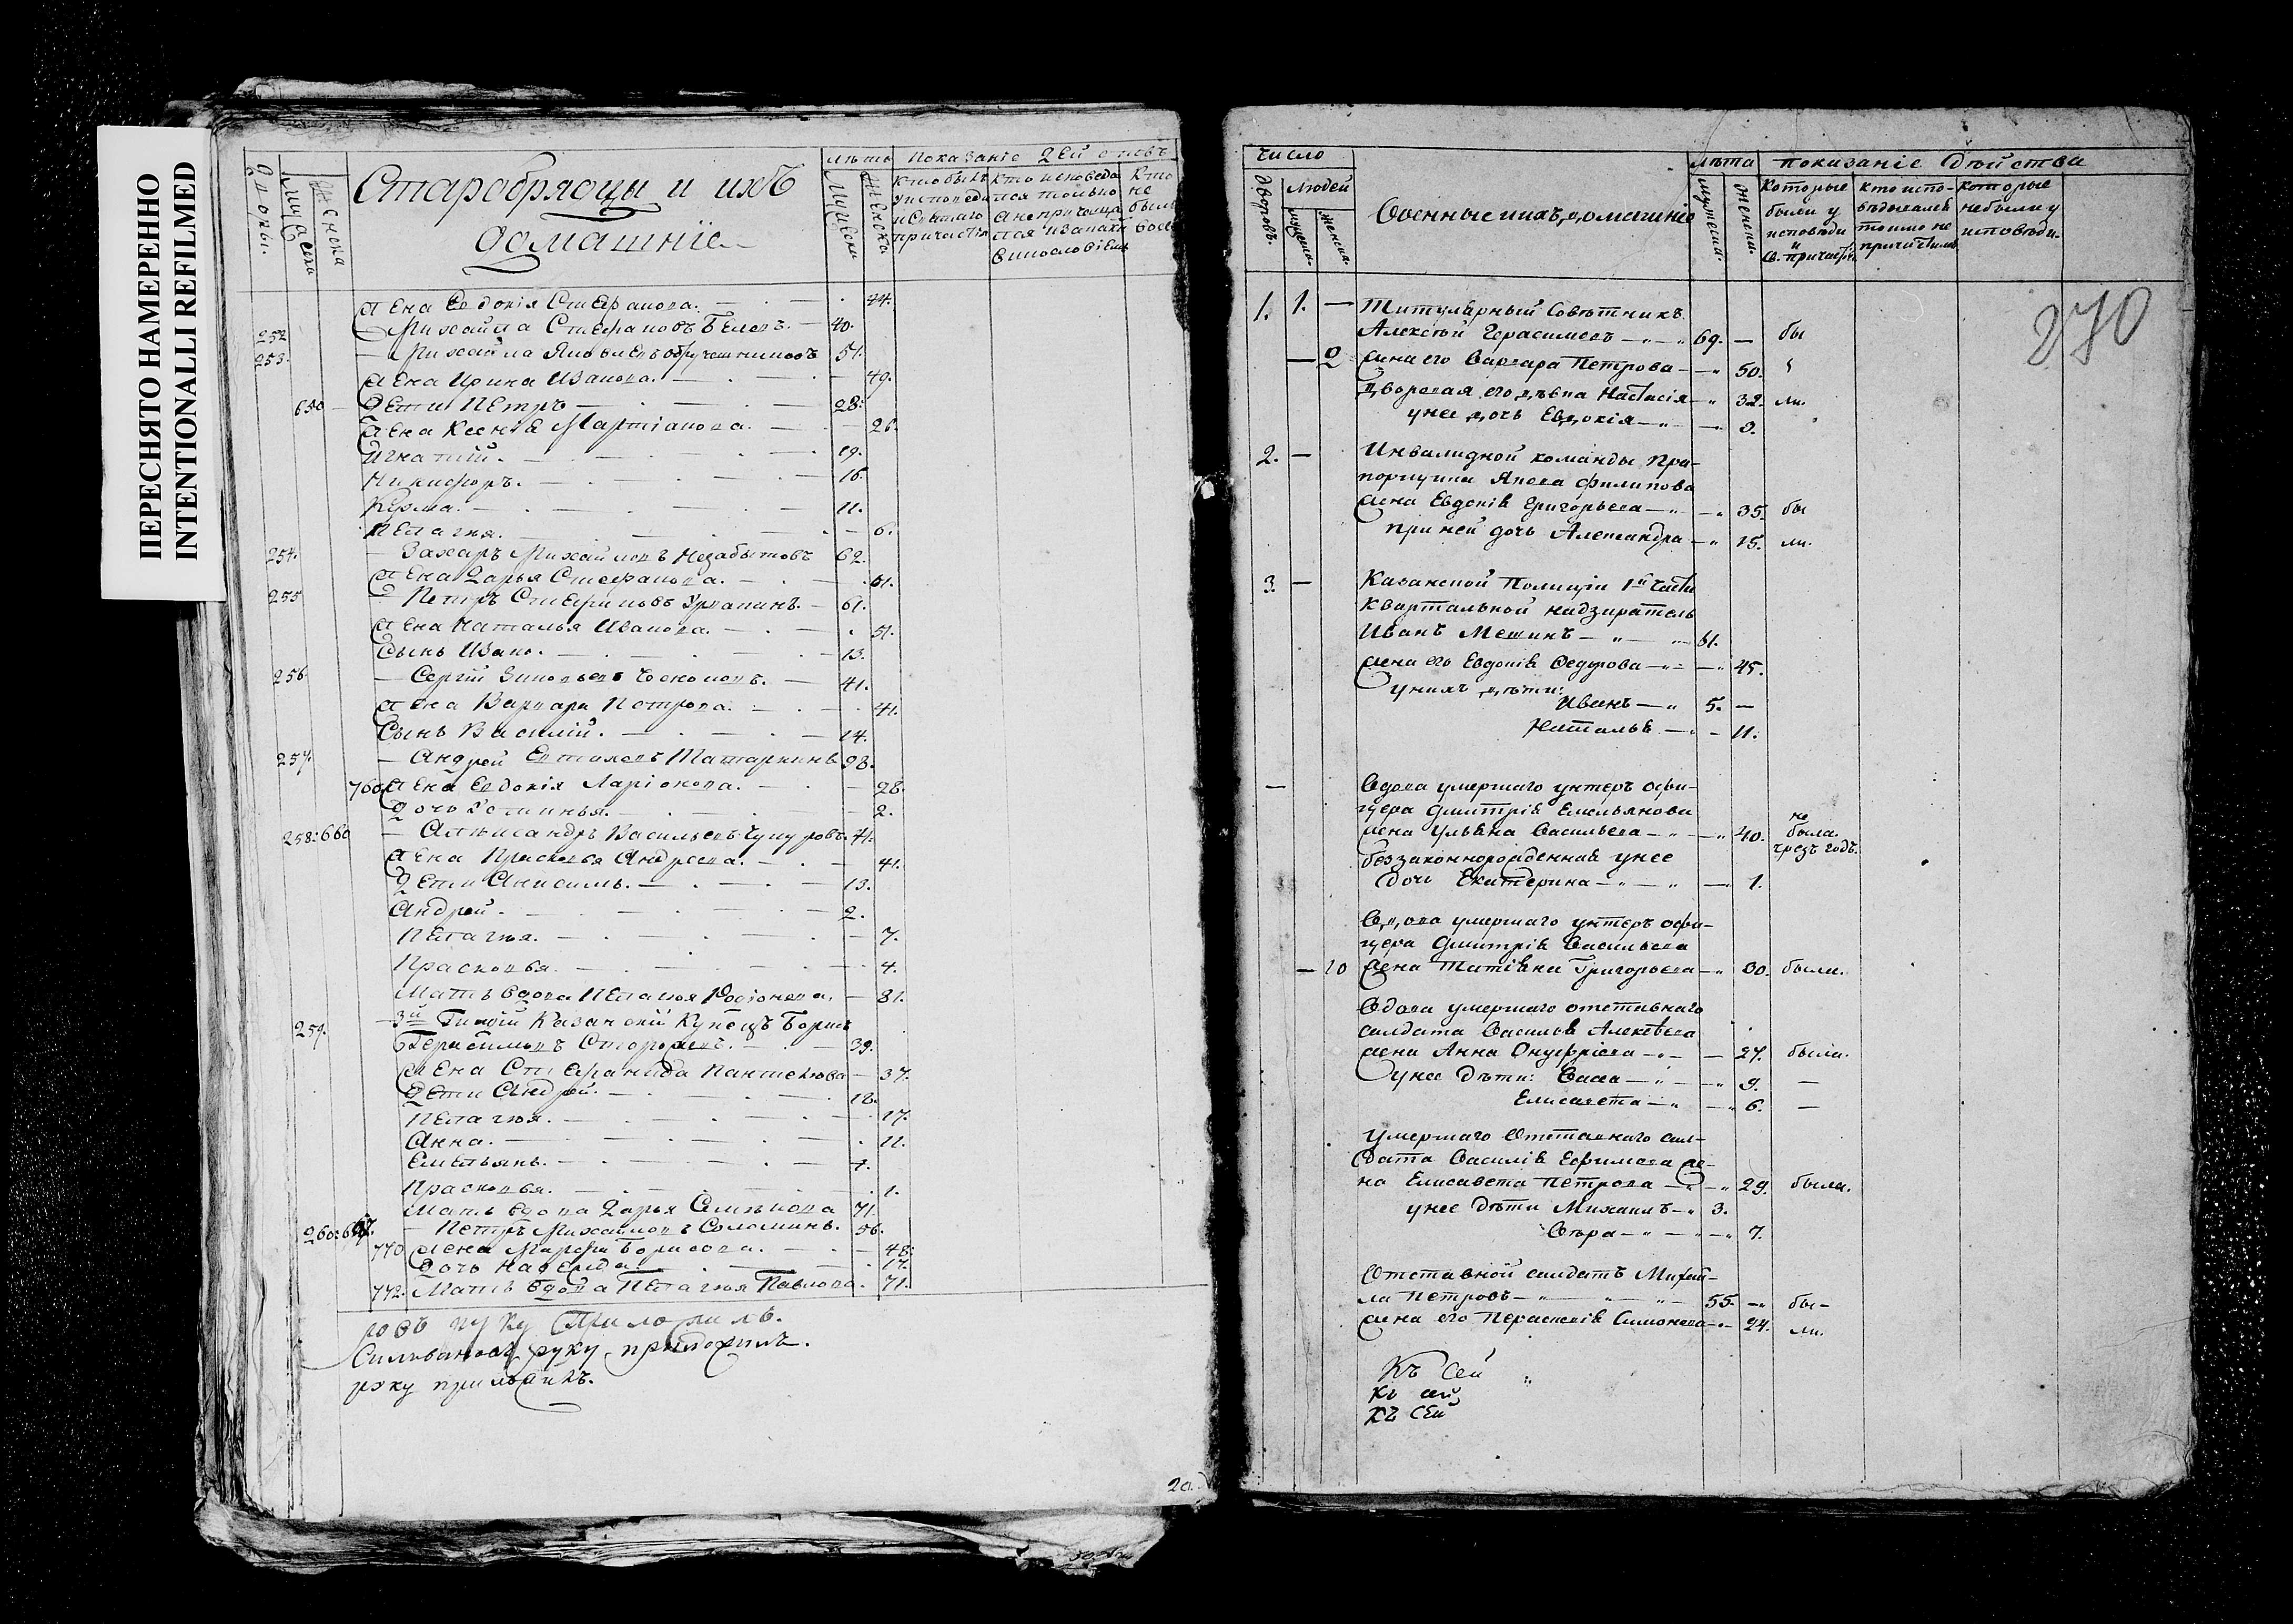 ПЕРЕСНЯТО НАМЕРЕННО
INTENTIONALLI REFILMED
дворы.
мужеска
Женска
Старобрядцы и ихъ
домашніе
лѣта
Мужеска
Женска
показаніе дѣйствъ
кто былъ
у исповеди
и святаго
причастія
кто исповеда
лся только
а не причаща
лся и за каки
ви
кто
не
былъ
Жена Евдокія Стефанова. 44.
252 Михайла Стефановъ Беловъ. 40.
253. Михайла Яковлевъ 51.
Жена Ирина Иванова. 49.
650 Дети Петръ 28.
Жена Ксенія Мартіанова. 26.
Игнатій. 19.
Никифоръ. 16.
Козма. 11.
Пелагия. 6.
254. Захаръ Михайловъ Незабытовъ 62.
Жена Дарья Стефанова. 61.
255 Петръ Стефановъ 61.
Жена Наталья Иванова. 51.
Сынъ Иванъ. 13.
256. Сергій Зиновьевъ 41.
Жена Варвара Петрова. 41.
Сынъ Василій. 14.
257. Андрей Татаркинъ 98.
760 Жена Евдокія Ларіонова. 28.
Дочь Устинья. 2.
258. 660 Александръ Васильевъ 41.
Жена Прасковья Андреева. 41.
Дети Анисимъ. 13.
Андрей. 2.
Пелагия. 7.
Прасковья. 4.
Мать вдова Пелагия Родіонова. 81.
259. 3й Гилдіи Казанскій Купецъ Борисъ
Герасимовъ 39.
Жена Стефанида Пантелѣева 37.
Дети Андрей. 18.
Пелагия. 17.
Анна. 11.
Емельянъ. 7.
Прасковья. 1.
Мать вдова Дарья 71.
260. Петръ Михайловъ Соломинъ. 56.
770 Жена Марфа Борисова. 48.
Дочь Надежда. 17.
772. Мать вдова Пелагия Павлова. 71.
ровъ руку Приложилъ.
Силвановъ руку приложилъ.
руку приложилъ.
20
Число
дворовъ.
Людей
мужеска.
женска.
Военные и ихъ домашніе
лѣта
мужеска.
женска.
показаніе дѣйства
Которые
были у
исповѣди
и
св. причастія
кто испо-
вѣдовался
токмо не
причастился
которые
не были у
исповѣди.
270
1. 1. — Титулярный Совѣтникъ
Алексѣй Герасимовъ 69. — бы
— 2 Жена его Варвара Петрова 50.
Дворовая его дѣвка Настасія 32. ли.
у нее дочь Евдокія 9.
2. — Инвалидной команды Пра-
порщика Якова Филипова
жена Евдокія Григорьева 35. бы
при ней дочь Александра 15. ли.
3. — Казанской Полиціи 1й Части
Квартальной надзиратель
Иванъ Мешинъ 61.
жена его Евдокія Федорова 45.
у нихъ дѣти:
Иванъ 5. —
Наталья 11.
— Вдова умершаго унтеръ офи-
цера Дмитрія Емельянова
жена Ульяна Васильева 40. не была чрезъ годъ.
беззаконнорожденная у нее
дочь Екатерина 1.
Вдова умершаго унтеръ офи-
цера Дмитрія Васильева
— 10 жена Татіяна Григорьева 30. была.
Вдова умершаго отставнаго
салдата Василья Алексѣева
жена Анна Онуфріева 27. была.
у нее дѣти: Васса 9. —
Елисавета 6. —
умершаго Отставнаго сал-
дата Василія Ефимова же-
на Елисавета Петрова 29. была.
у нее дѣти Михаилъ 3.
Вѣра 7.
Отставной салдатъ Михай-
ла Петровъ 55. бы-
жена его Параскевія Симонова 24. ли.
Къ Сей
Къ сей
Къ Сей